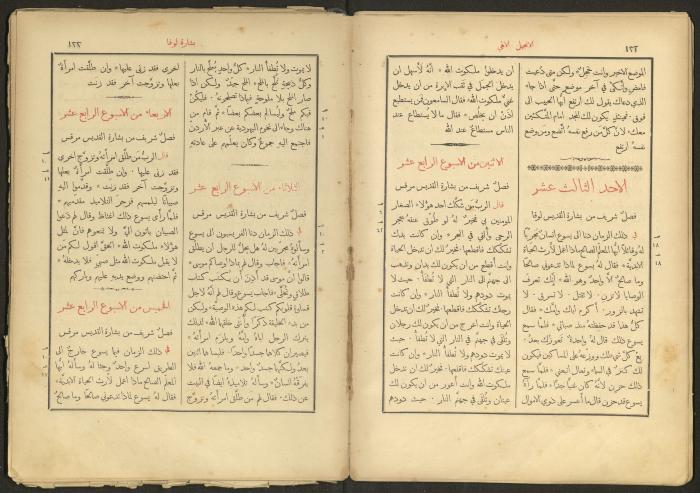 الانجيل الالهي
١٢٢
الموضع الاخير وانت خجل * ولكن متى دعيت
فامض واتكئ في آخر موضع حتى اذا جاء
الذي دعاك يقول لك ارتفع ايها الحبيب الى
فوق. فحينئذٍ يكون لك المجد امام المتكئين
معك * لان كل من رفع نفسه اتضع ومن وضع
نفسه ارتفع
الاحد الثالث عشر
فصل شريف من بشارة القديس لوقا
في ذلك الزمان دنا الى يسوع انسان مجربًا
له وقائلًا ايها المعلم الصالح ماذا اعمل لأرث الحياة
الابدية * فقال له يسوع لماذا تدعوني صالحًا
وما صالح الا واحد وهو الله * انك تعرف
الوصايا لا تزن. لا تقتل. لا تسرق. لا
تشهد بالزور. أكرم اباك وأمك * فقال
كل هذا قد حفظته منذ صبائي * فلما سمع
يسوع ذلك قال له واحدة تعوزك بعد.
بع كل شيء لك ووزعه على المساكين فيكون
لك كنز في السماء وتعال اتبعني * فلما سمع
ذلك حزن لأنه كان غنيًا جدًا * فلما رآه
يسوع قد حزن قال ما أعسر على ذوي الاموال
ان يدخلوا ملكوت الله * انه لأسهل ان
يدخل الجمل في ثقب الابرة من ان يدخل
غني ملكوت الله * فقال السامعون فمن يستطيع
اذن ان يخلص. فقال ما لا يستطاع عند
الناس مستطاع عند الله
الاثنين من الاسبوع الرابع عشر
فصل شريف من بشارة القديس مرقس
قال الرب من شكك احد هؤلاء الصغار
المؤمنين بي فخير له لو طوق عنقه بحجر
الرحى وألقي في البحر * وان كانت يدك
تشككك فاقطعها. فخير لك ان تدخل الحياة
وانت أقطع من ان يكون لك يدان وتذهب
الى جهنم الى النار التي لا تطفأ. حيث لا
يموت دودهم ولا تطفأ النار * وان كانت
رجلك تشككك فاقطعها. فخير لك ان تدخل
الحياة وانت اعرج من ان يكون لك رجلان
وتلقى في جهنم في النار التي لا تطفأ. حيث
لا يموت دودهم ولا تطفأ النار * وان كانت
عينك تشككك فاقلعها. فخير لك ان تدخل
ملكوت الله وانت أعور من ان يكون لك
عينان وتلقى في جهنم النار. حيث دودهم
بشارة لوقا
١٢٣
لا يموت ولا تطفأ النار * كل واحد يملح بالنار
وكل ذبيحة تملح بالملح * الملح جيد. ولكن اذا
صار الملح بلا ملوحة فبماذا تصلحونه. فليكن
فيكم ملح وليسالم بعضكم بعضًا * ثم قام من
هناك وجاء الى تخوم اليهودية عن عبر الأردن
فاجتمع اليه جموع وكان يعلمهم على عادته
الثلاثاء من الاسبوع الرابع عشر
فصل شريف من بشارة القديس مرقس
في ذلك الزمان دنا الفريسيون الى يسوع
وسألوه مجربين له هل يحل للرجل ان يطلق
امرأته * فاجاب وقال لهم بماذا اوصاكم موسى *
قالوا ان موسى قد أذن ان يكتب كتاب
طلاق وتخلى * فاجاب يسوع وقال لهم انه لاجل
قساوة قلوبكم كتب لكم هذه الوصية * ولكن
من بدء الخليقة ذكرًا وأنثى خلقهما الله * لذلك
يترك الرجل اباه وأمه ويلزم امرأته *
فيصيران كلاهما جسدًا واحدًا. فليسا هما اثنين
بعد ولكنهما جسد واحد. وما جمعه الله فلا
يفرقه انسان * وسأله تلاميذه ايضًا في البيت
عن ذلك. فقال لهم من طلق امرأته وتزوج
اخرى فقد زنى عليها * وان طلقت امرأة
بعلها وتزوجت آخر فقد زنت
الاربعاء من الاسبوع الرابع عشر
فصل شريف من بشارة القديس مرقس
قال الرب من طلق امرأته وتزوج اخرى
فقد زنى عليها. وان طلقت امرأة بعلها
وتزوجت آخر فقد زنت * وقدموا اليه
صبيانًا ليلمسهم فزجر التلاميذ مقدميهم *
فلما رأى يسوع ذلك اغتاظ وقال لهم دعوا
الصبيان يأتون الي ولا تمنعوهم فان لمثل
هؤلاء ملكوت الله * الحق اقول لكم من
لا يقبل ملكوت الله مثل صبي فلا يدخله *
ثم احتضنهم ووضع يديه عليهم وباركهم
الخميس من الاسبوع الرابع عشر
فصل شريف من بشارة القديس مرقس
في ذلك الزمان فيما يسوع خارج الى
الطريق اسرع واحد وجثا له وسأله ايها
المعلم الصالح ماذا اعمل لأرث الحياة الابدية *
فقال له يسوع لماذا تدعوني صالحًا وما صالح